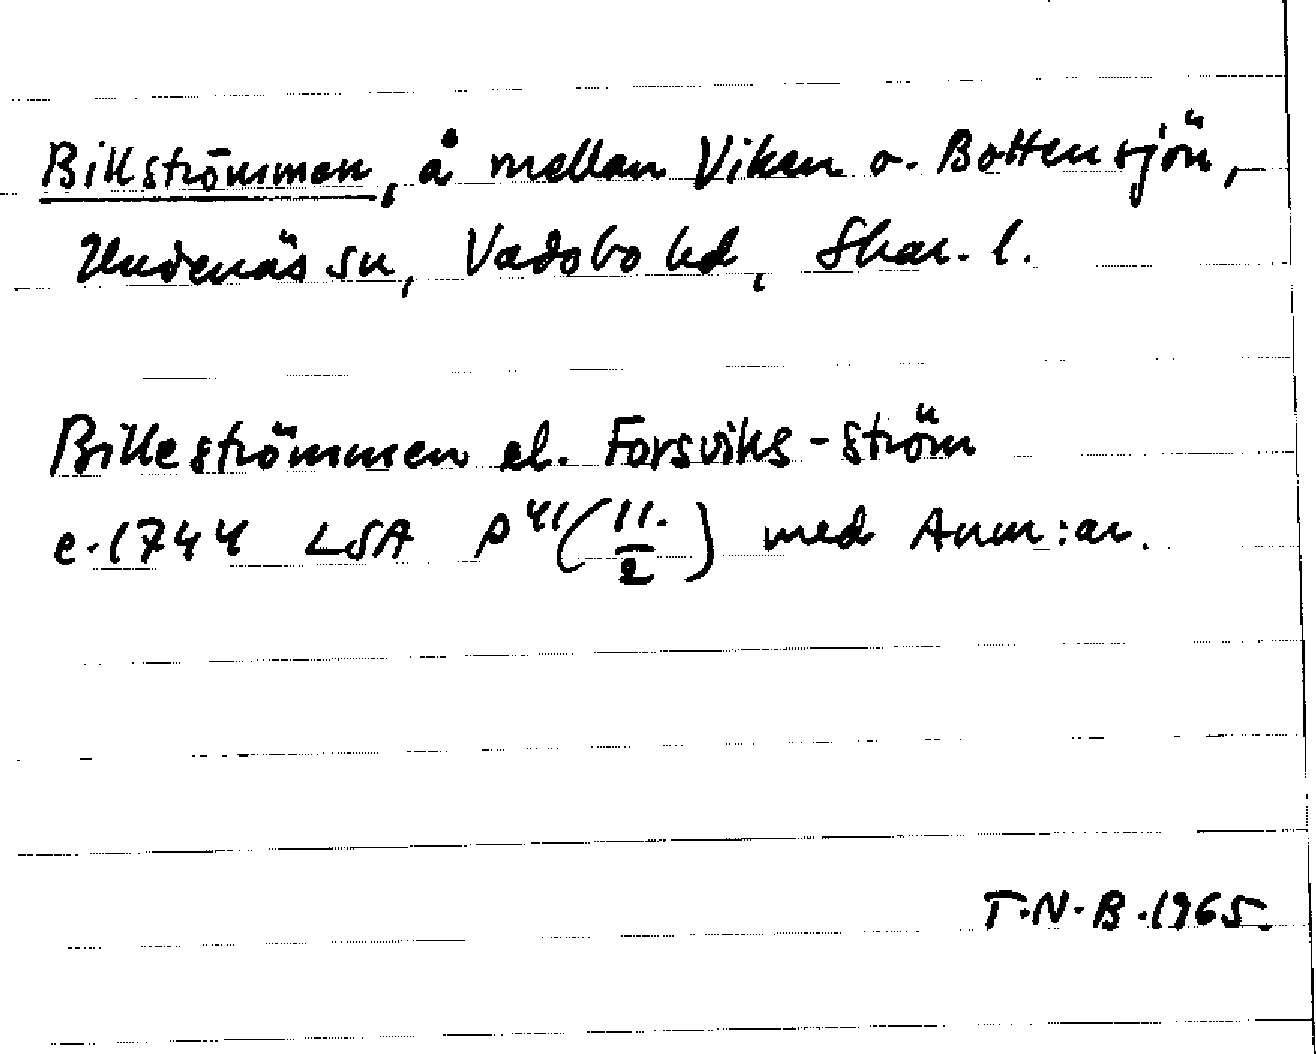 Billströmmen, å mellan Viken o. Bottensjön,
Undenäs sn, Vadsbo hd, Skar. l.
Billeströmmen el. Forsviks-ström
c. 1744 LSA P 41 (11./2) med Anm:ar.
T.N.B. 1965.